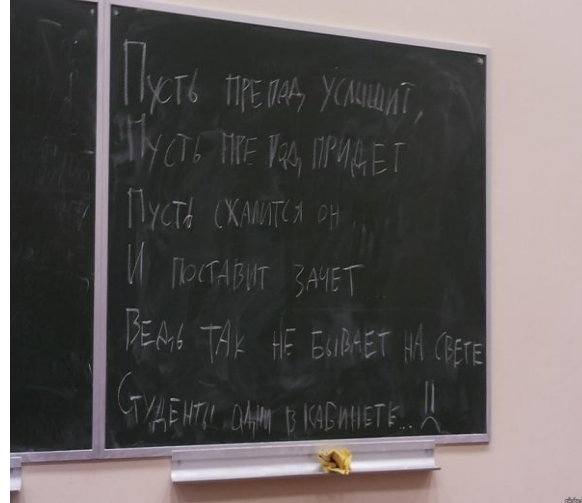 Пусть препад услишит,
Пусть препод придет
Пусть сжалится он...
И поставит зачет...
Ведь так не бывает на свете
Студенты одни в кабинете...!!